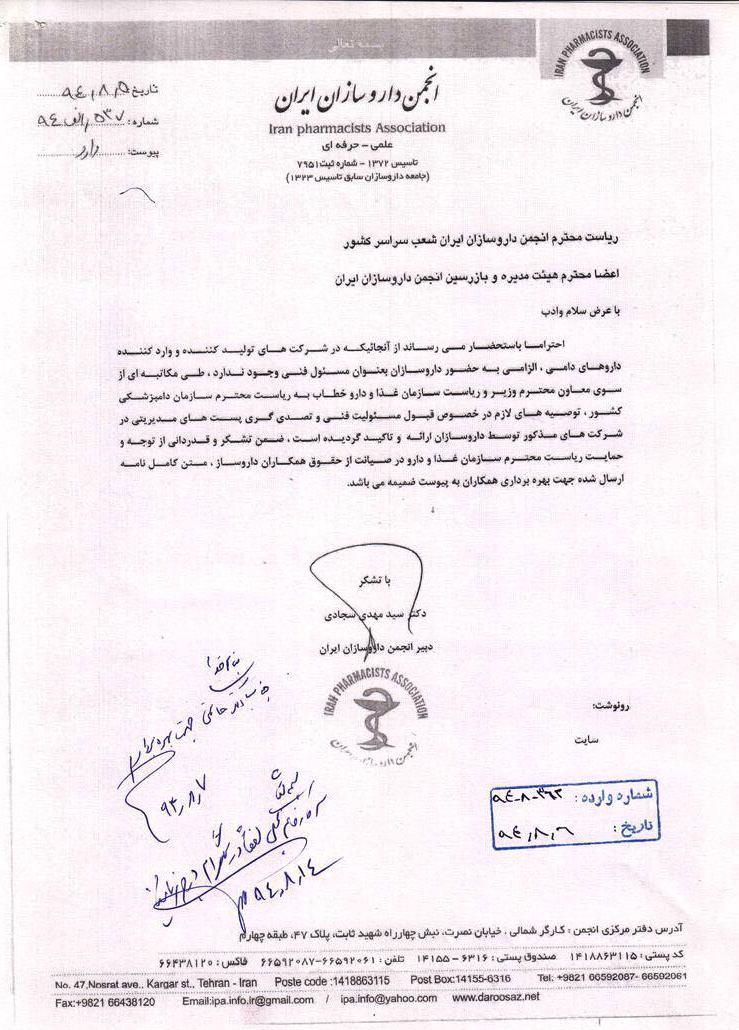 بسمه تعالی
IRAN PHARMACISTS ASSOCIATION
انجمن داروسازان ایران
انجمن داروسازان ایران
Iran pharmacists Association
علمی – حرفه ای
تاسیس ۱۳۷۲ – شماره ثبت ۷۹۵۱
(جامعه داروسازان سابق تاسیس ۱۳۲۳)
تاریخ: ۹۴،۸،۵
شماره: ۵۳۷،الف ۹۴
پیوست: دارد
ریاست محترم انجمن داروسازان ایران شعب سراسر کشور
اعضا محترم هیئت مدیره و بازرسین انجمن داروسازان ایران
با عرض سلام وادب
احتراما باستحضار می رساند از آنجائیکه در شرکت های تولید کننده و وارد کننده
داروهای دامی ، الزامی به حضور داروسازان بعنوان مسئول فنی وجود ندارد ، طی مکاتبه ای از
سوی معاون محترم وزیر و ریاست سازمان غذا و دارو خطاب به ریاست محترم سازمان دامپزشکی
کشور ، توصیه های لازم در خصوص قبول مسئولیت فنی و تصدی گری پست های مدیریتی در
شرکت های مذکور توسط داروسازان ارائه و تاکید گردیده است ، ضمن تشکر و قدردانی از توجه و
حمایت ریاست محترم سازمان غذا و دارو در صیانت از حقوق همکاران داروساز ، متن کامل نامه
ارسال شده جهت بهره برداری همکاران به پیوست ضمیمه می باشد.
با تشکر
دکتر سید مهدی سجادی
دبیر انجمن داروسازان ایران
IRAN PHARMACISTS ASSOCIATION
انجمن داروسازان ایران
رونوشت:
سایت
شماره وارده: ۹۴-۸-۳۶۲
تاریخ: ۹۴،۸،۶
بنام خدا
جهت بهره برداری
۹۴،۸،۷
لطفاً در
۹۴،۸،۱۴
آدرس دفتر مرکزی انجمن : کارگر شمالی ، خیابان نصرت، نبش چهارراه شهید ثابت، پلاک ۴۷، طبقه چهارم
کد پستی : ۱۴۱۸۸۶۳۱۱۵ صندوق پستی : ۶۳۱۶ – ۱۴۱۵۵ تلفن : ۶۶۵۹۲۰۶۱-۶۶۵۹۲۰۸۷ فاکس : ۶۶۴۳۸۱۲۰
No. 47,Nosrat ave., Kargar st., Tehran - Iran Poste code :1418863115 Post Box:14155-6316 Tel: +9821 66592087- 66592061
Fax:+9821 66438120 Email:ipa.info.ir@gmail.com / ipa.info@yahoo.com www.daroosaz.net